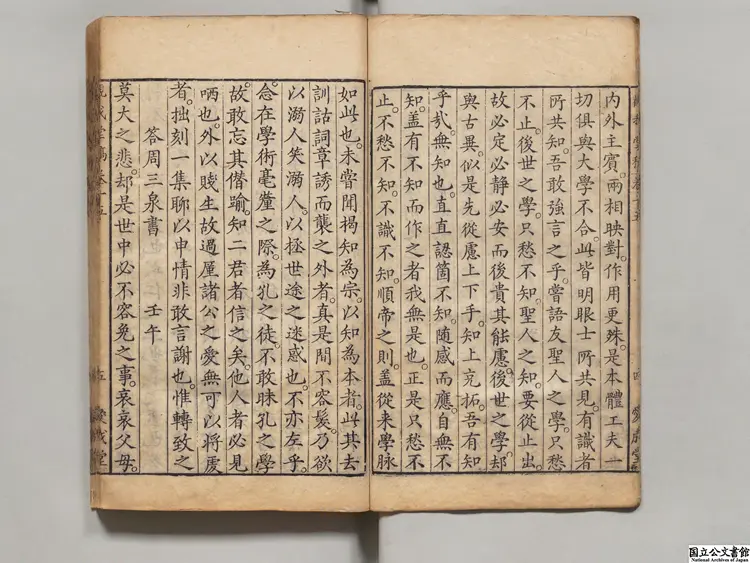 内外主賓。兩相映對。作用更殊。是本體工夫一
切俱與大學不合。此皆明眼士所共見。有識者
所共知。吾敢強言之乎。嘗語友聖人之學。只愁
不止。後世之學。只愁不知。聖人之知。要從止出。
故必定必靜必安而後貴其能慮。後世之學。却
與古異。似是先從慮上下手。知上充拓。吾有知
乎哉。無知也。直直認箇不知。隨感而應。自無不
知。蓋有不知而作之者。我無是也。正是只愁不
止。不愁不知。不識不知。順帝之則。蓋從來學脉
如此也。未嘗聞揭知為宗。以知為本者。此其去
訓詁詞章誘而襲之外者。真是間不容髮。乃欲
以溺人笑溺人。以拯世途之迷惑也。不亦左乎。
念在學術毫釐之際。為孔之徒。不敢昧孔之學
故敢忘其僭踰。知二君者信之矣。他人者必見
哂也。外以賤生故過厪諸公之愛。無可以將虔
者。拙刻一集聊以申情。非敢言謝也。惟轉致之
答周三泉書 壬午
莫大之悲。却是世中必不容免之事。哀哀父母。
四
五
愛成堂
國立公文書館
National Archives of Japan